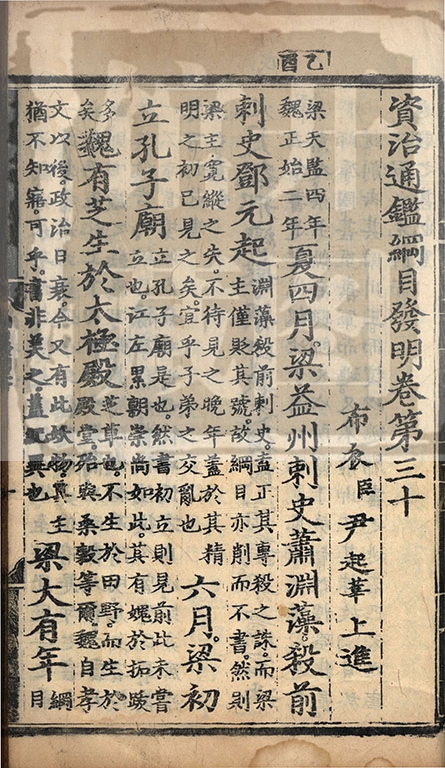 乙酉
資治通鑑綱目發明卷第三十
布衣臣尹起莘上進
梁天監四年
魏正始二年
夏四月。梁益州刺史蕭淵藻。殺前
刺史鄧元起
淵藻殺前刺史。書。正其專殺之誅。而梁
主僅貶其號。故綱目亦削而不書。然則
梁主寬縱之失。不待見之晚年。蓋於其精
明之初已見之矣。宜乎子弟之交亂也
六月。梁初
立孔子廟
立孔子廟是也。然書初立則見前此未嘗
立也。江左累朝崇尚如此。其有媿於拓跋
多
矣
魏有芝生於太極殿
芝草也。不生於田野。而生於
殿堂。殆與桑穀等爾。魏自孝
文以後。政治日衰。今又有此妖物。其主
猶不知寤。可乎。書非美之。蓋記異也
梁大有年
綱
目